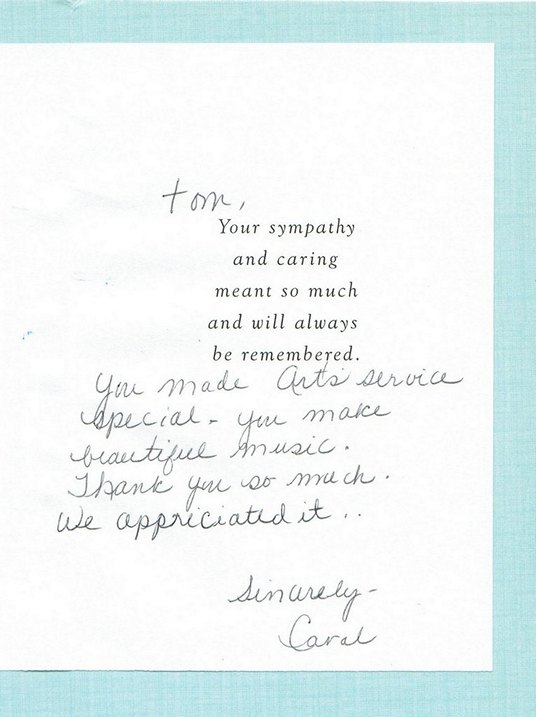 Tom,
Your sympathy
and caring
meant so much
and will always
be remembered.
You made Art's service
special - you make
beautiful music.
Thank you so much.
We appriciated it ..
Sincerely -
Carol